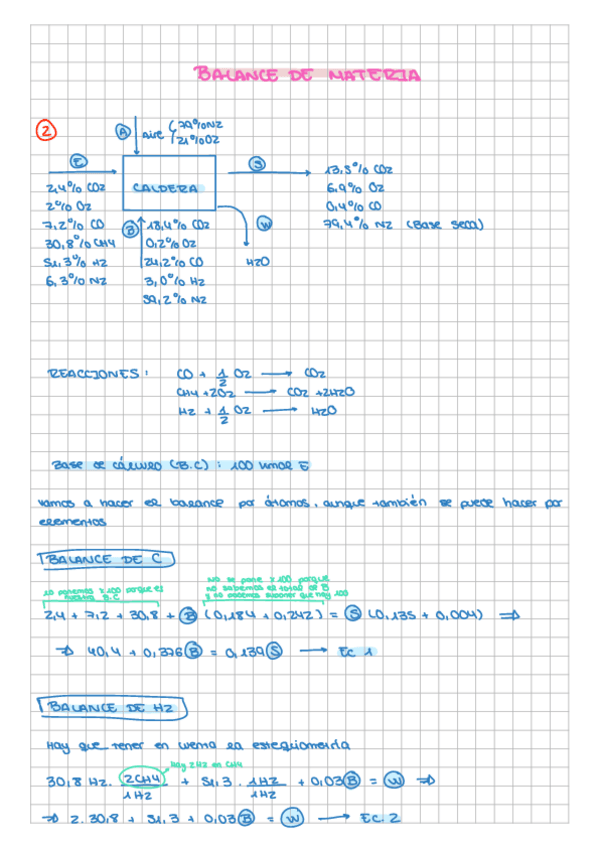 BALANCE DE MATERIA
2
A
aire
79% N2
21% O2
E
S
2,4% CO2
2% O2
7,2% CO
30,8% CH4
51,3% H2
6,3% N2
CALDERA
B
18,4% CO2
0,2% O2
24,2% CO
3,0% H2
59,2% N2
W
H2O
13,5% CO2
6,9% O2
0,4% CO
79,4% N2 (Base seca)
REACCIONES: CO + 1/2 O2 → CO2
CH4 + 2O2 → CO2 + 2H2O
H2 + 1/2 O2 → H2O
Base de cálculo (B.C): 100 kmol E
Vamos a hacer el balance por átomos, aunque también se puede hacer por
elementos
BALANCE DE C
lo ponemos x100 porque es
nuestra B.C
No se pone x100 porque
no sabemos el total de B
y no podemos suponer que hay 100
2,4 + 7,2 + 30,8 + B (0,184 + 0,242) = S (0,135 + 0,004) ⇒
⇒ 40,4 + 0,376 B = 0,139 S → Ec 1
BALANCE DE H2
Hay que tener en cuenta la estequiometría
Hay 2H2 en CH4
30,8 H2 · 2CH4/1H2 + 51,3 · 1H2/1H2 + 0,03 B = W ⇒
⇒ 2 · 30,8 + 51,3 + 0,03 B = W → Ec. 2